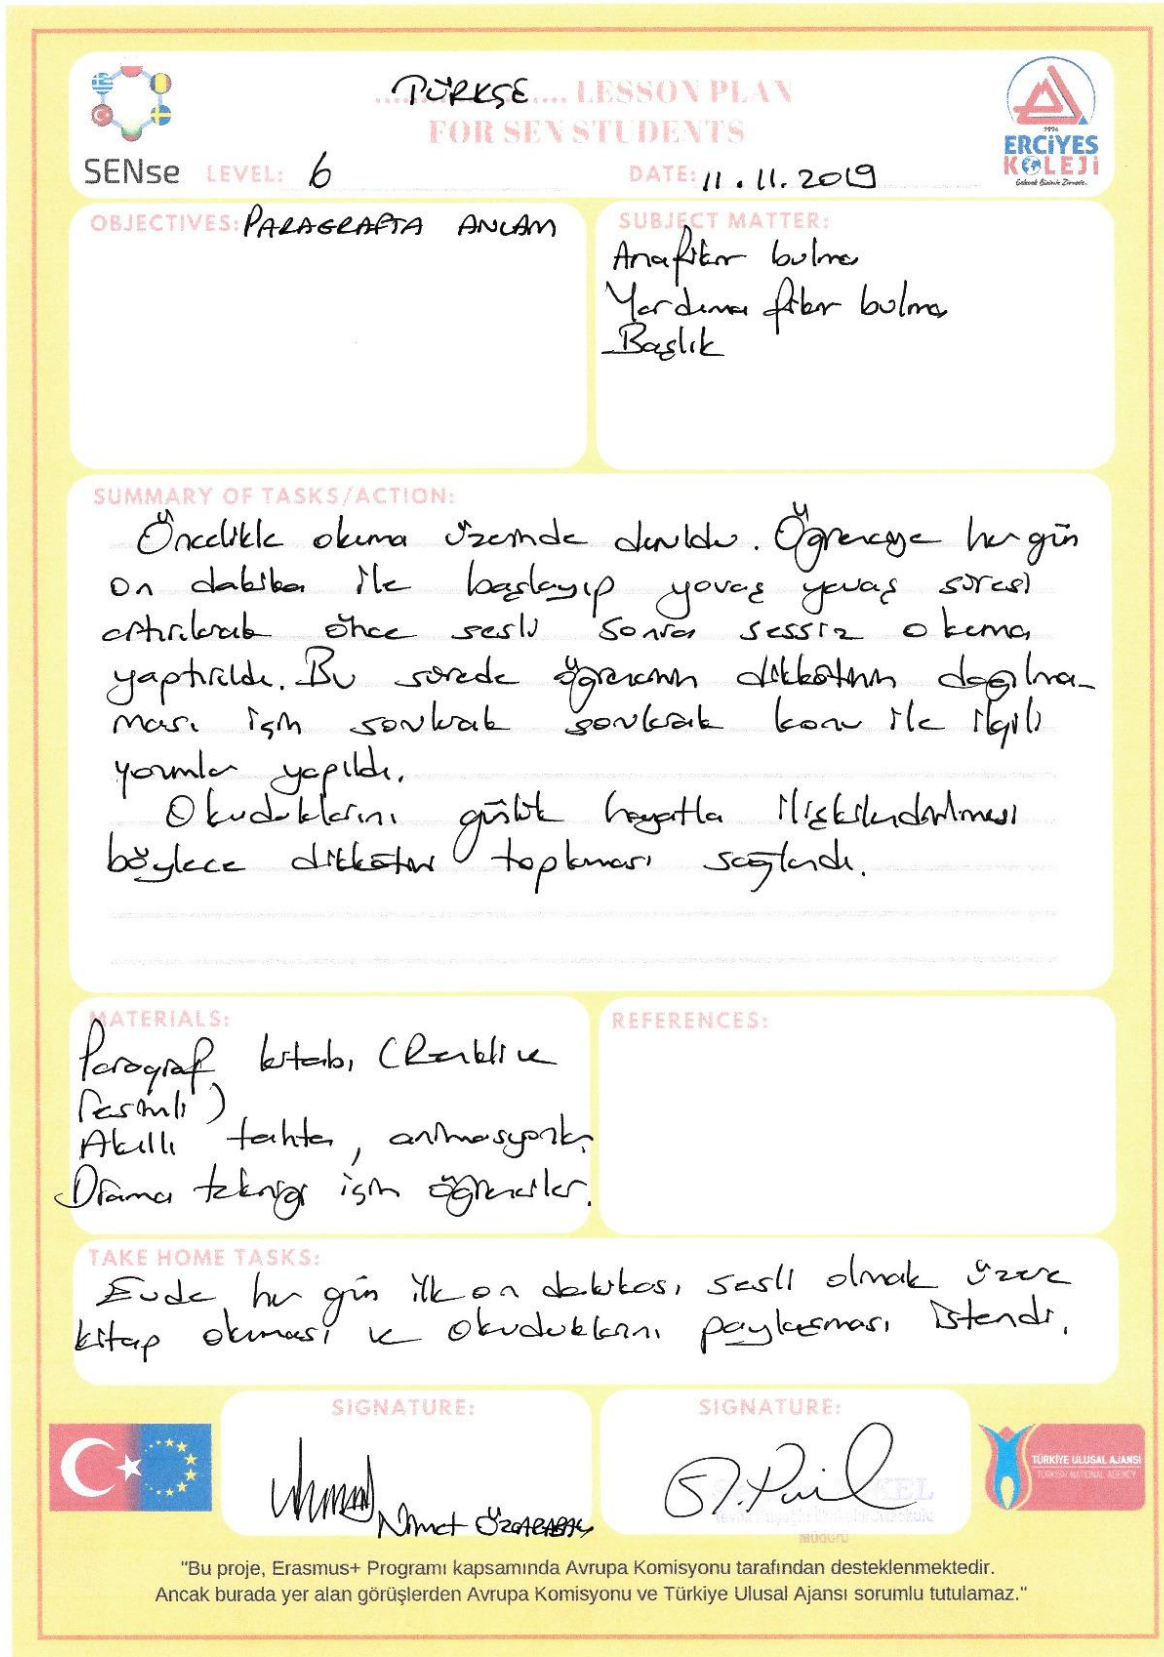 TÜRKÇE LESSON PLAN
FOR SEN STUDENTS
SENse LEVEL: 6
DATE: 11.11.2019
1974
ERCİYES
KOLEJİ
OBJECTIVES: PARAGRAFTA ANLAM
SUBJECT MATTER:
Anafikir bulma
Yardımcı fikir bulma
Başlık
SUMMARY OF TASKS/ACTION:
Öncelikle okuma üzerinde duruldu. Öğrenciye her gün
on dakika ile başlayıp yavaş yavaş süresi
artırılarak önce sesli sonra sessiz okuma
yaptırıldı. Bu sürede öğrencinin dikkatinin dağılma-
ması için sorularak konu ile ilgili
yorumlar yapıldı.
Okuduklarını günlük hayatla ilişkilendirilmesi
böylece dikkatini toplaması sağlandı.
MATERIALS:
Paragraf kitabı (Renkli ve
resimli)
Akıllı tahta, animasyonlar
Drama tekniği için öğrenciler.
REFERENCES:
TAKE HOME TASKS:
Evde her gün ilk on dakikası sesli olmak üzere
kitap okuması ve okuduklarını paylaşması istendi.
SIGNATURE:
Nimet
SIGNATURE:
MÜDÜRÜ
TÜRKİYE ULUSAL AJANSI
TURKISH NATIONAL AGENCY
"Bu proje, Erasmus+ Programı kapsamında Avrupa Komisyonu tarafından desteklenmektedir.
Ancak burada yer alan görüşlerden Avrupa Komisyonu ve Türkiye Ulusal Ajansı sorumlu tutulamaz."